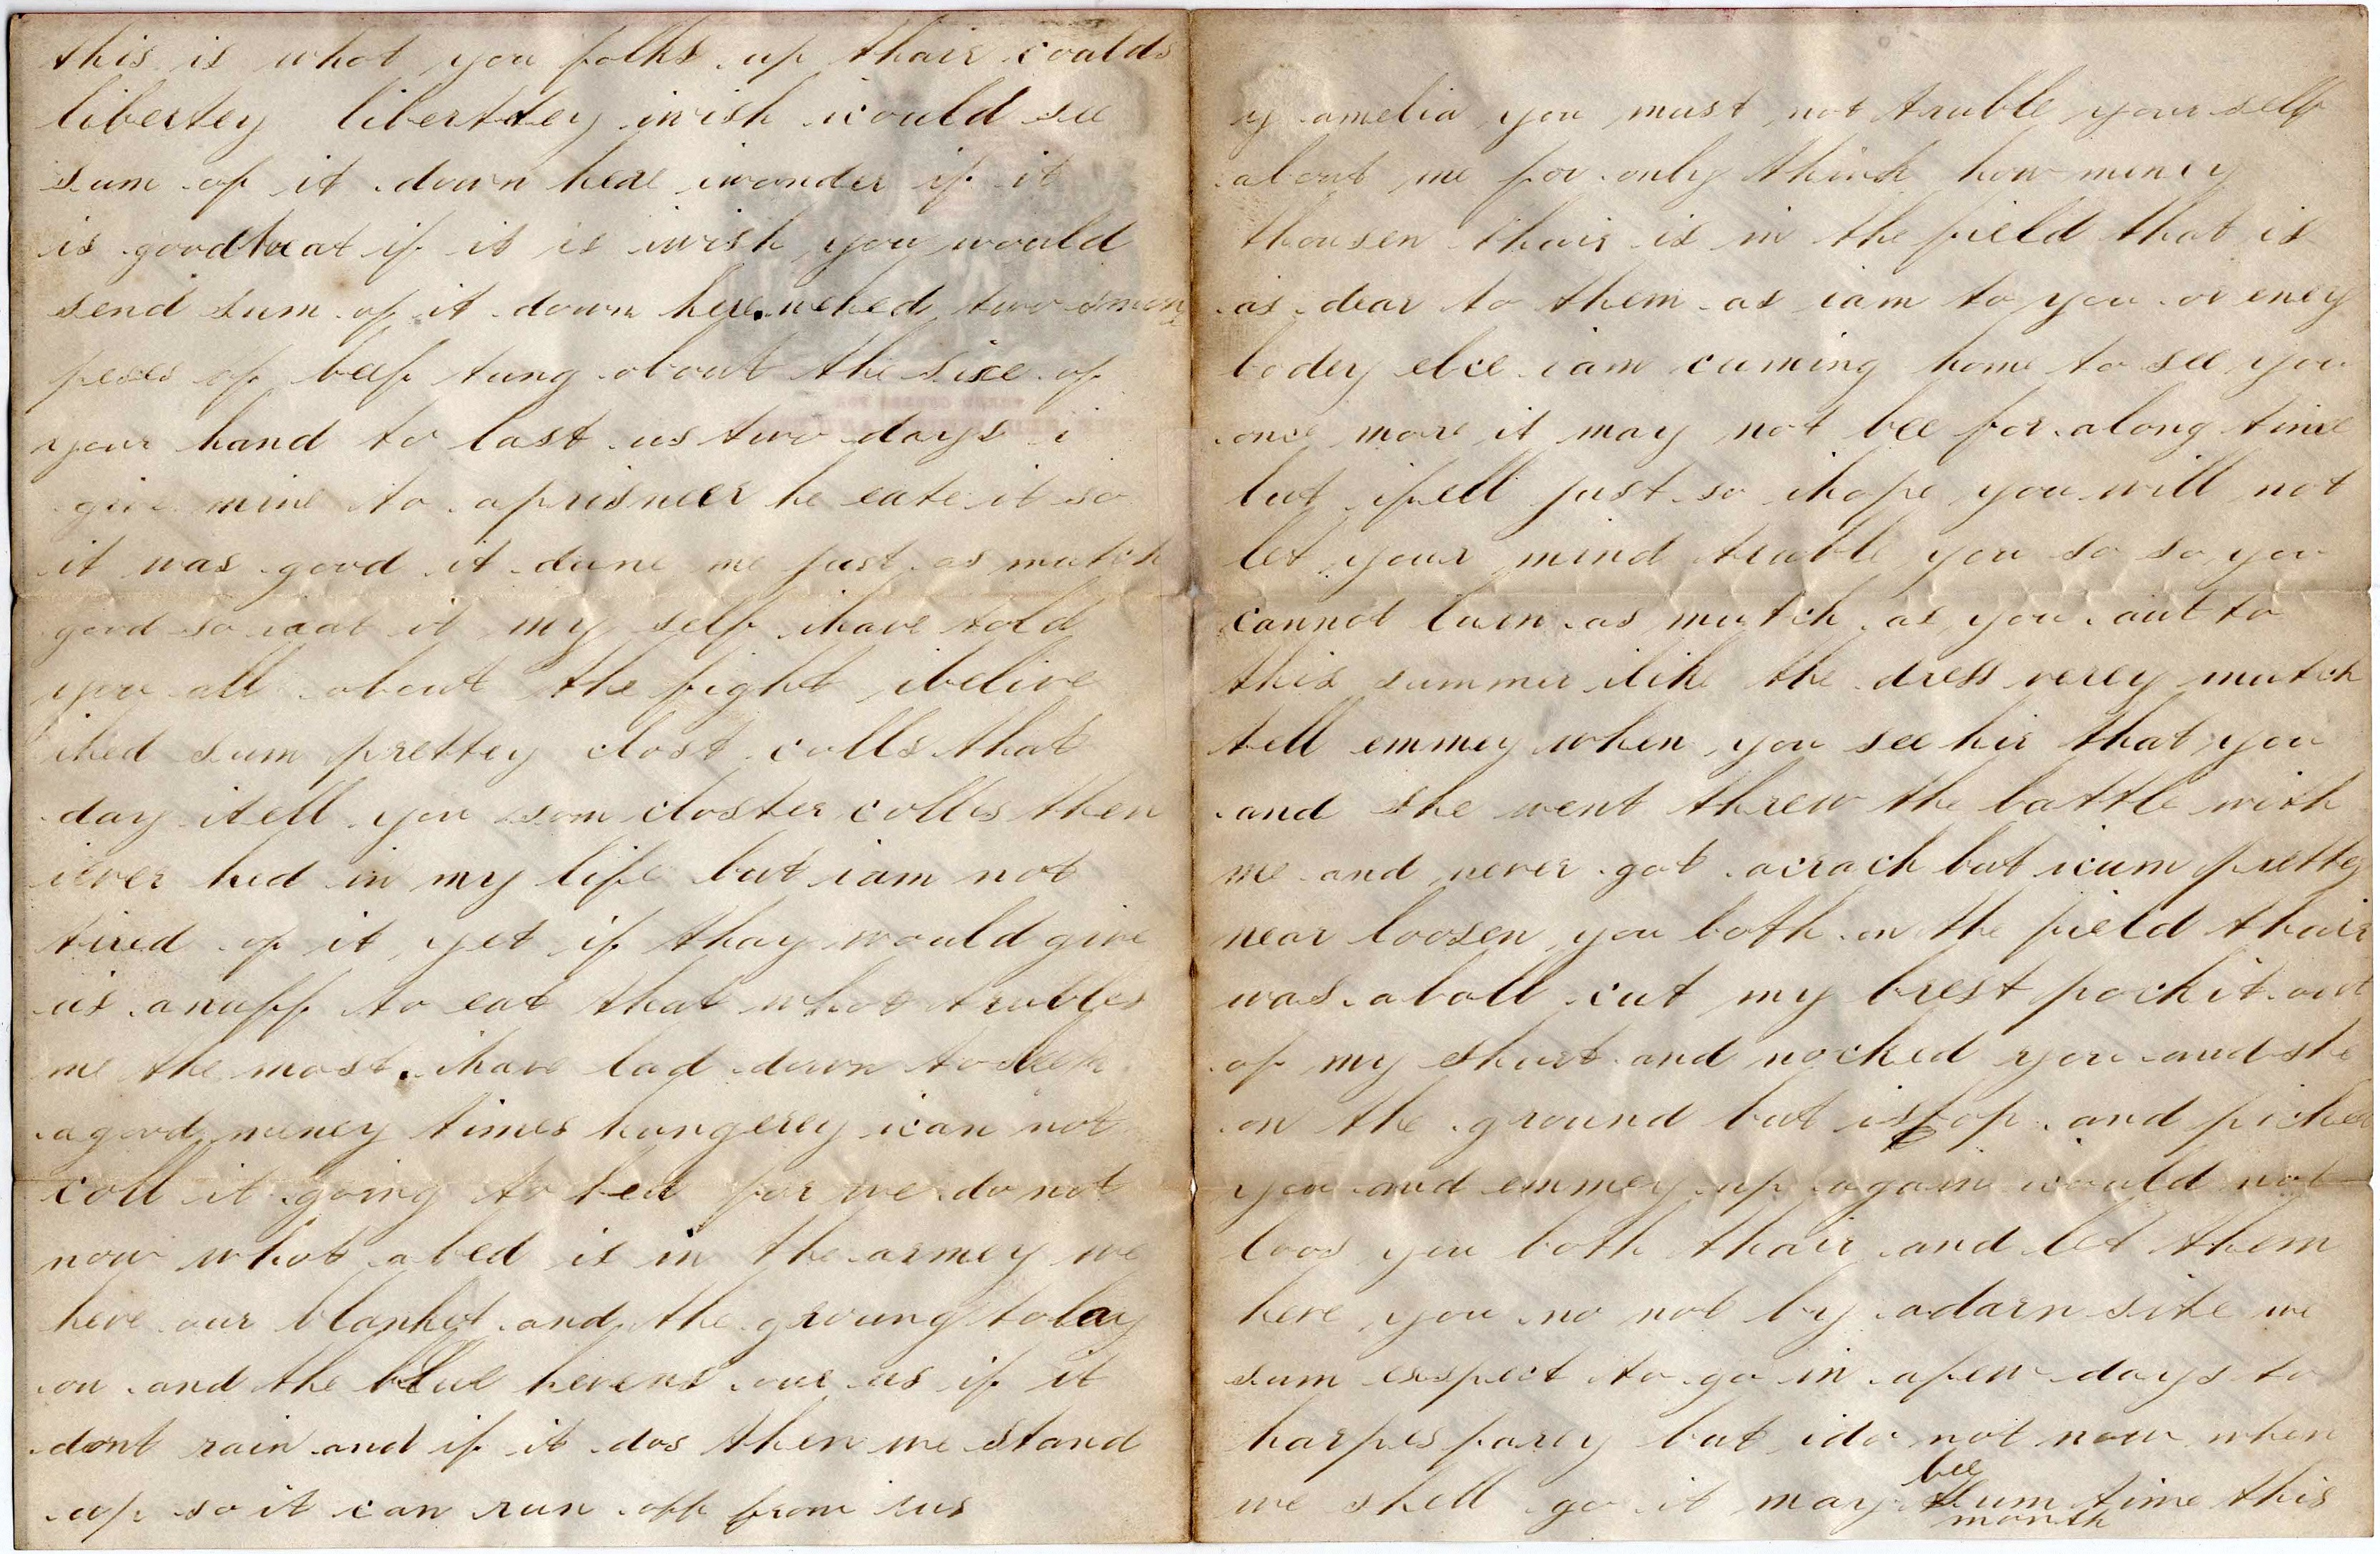 this is whot you folks up thair coalds
libertey liberttey iwish icould see
sum of it down heal iwonder if it
is good to eat if it is iwish you would
send sum of it down here. wehed two smory
peses of beef tung about the sice of
your hand to last us two days i
give mine to aprisneer he eate it so
it was good it dune me just as mutch
good so ieat it my self ihave told
you all about the fight ibelive
ihed sum prettey clost colls that
day itell you som closter colls then
iever hed in my life but iam not
tired of it yet if thay would give
us anuff to eat that whot trubles
me the most. ihave lad down to sleep
agood meney times hungerey ican not
coll it going to bed for we do not
now whot abed is in the armey we
heve our blanket and the groung to lay
on and the blue hevens ove us if it
dont rain and if it dos then we stand
up so it can run off from us
y amelia you must not truble your self
about me for only think how meney
thousen thair is in the field that is
as dear to them as iam to you or eney
bodey elce iam cuming home to see you
once more it may not bee for along time
but ifell just so ihope you will not
let your mind truble you so so you
cannot luen as mutch as you aut to
this summer ilike the dress verey mutch
tell emmey when you see hir that you
and she went threw the battle with
me and never got acrach but icum prettey
near loosen you both on the field thair
was aboll cut my brest pockit out
of my shurt and nocked you and she
on the ground but istop and picked
you and emmey up again iwould not
loos you both thair and let them
heve you no not by adarn site we
sum exspect to go in afew days to
harpes farey but ido not now when
we shell go it may bee sum time this
month